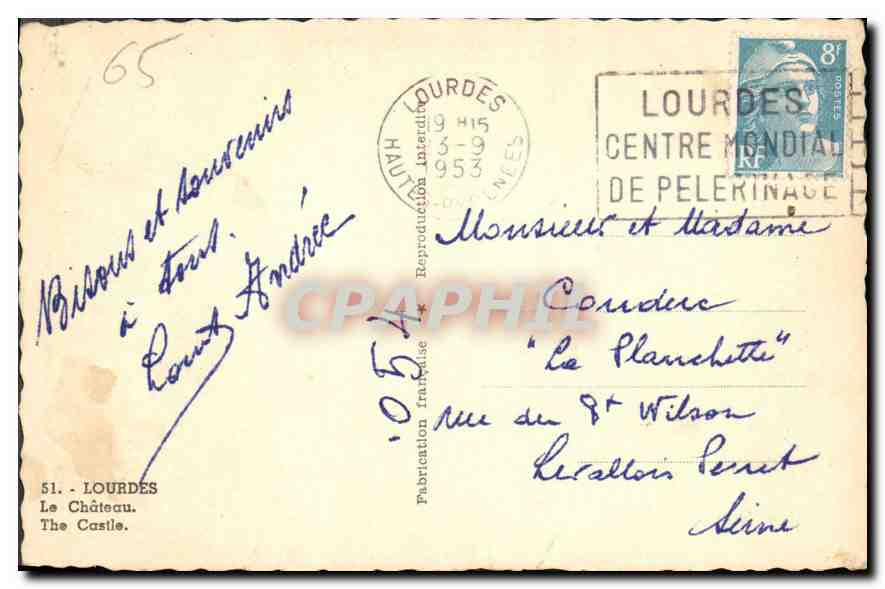 65
Bisous et souvenirs
à tous.
Andrée
51. - LOURDES
Le Château.
The Castle.
Fabrication française * Reproduction interdite
CPAPHIL
LOURDES
19 H15
3-9
1953
HAUTES-PYRENEES
8F
POSTES
RF
LOURDES
CENTRE MONDIAL
DE PELERINAGE
Monsieur et Madame
Couderc
"La Planchette"
rue du Pt Wilson
Levallois Perret
Seine